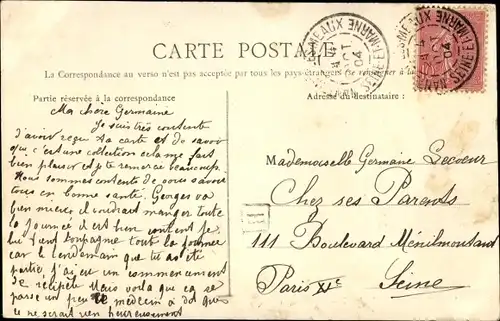 CARTE POSTALE
La Correspondance au verso n'est pas acceptée par tous les pays étrangers (se renseigner à la
Partie réservée à la correspondance
Adresse du destinataire :
NANT MEAUX SEINE-ET-MARNE
4 OCT 04
Ma chère Germaine
Je suis très contente
d'avoir reçu ta carte et de savoir
que c'est une collection cela me fait
bien plaisir et je te remercie beaucoup.
Nous sommes contents de vous savoir
tous en bonne santé. Georges va
bien mieux il voudrait manger toute
la journée il est bien content je
lui tient compagnie tout la journée
car le lendemain que tu as été
partie j'ai eu un commencement
de Mais voila que ça se
passe un peu le médecin a dit que
ce ne serait rien heureusement
Mademoiselle Germaine Lecoeur
Chez ses Parents
111 Boulevard Ménilmontand
Paris XIe
Seine